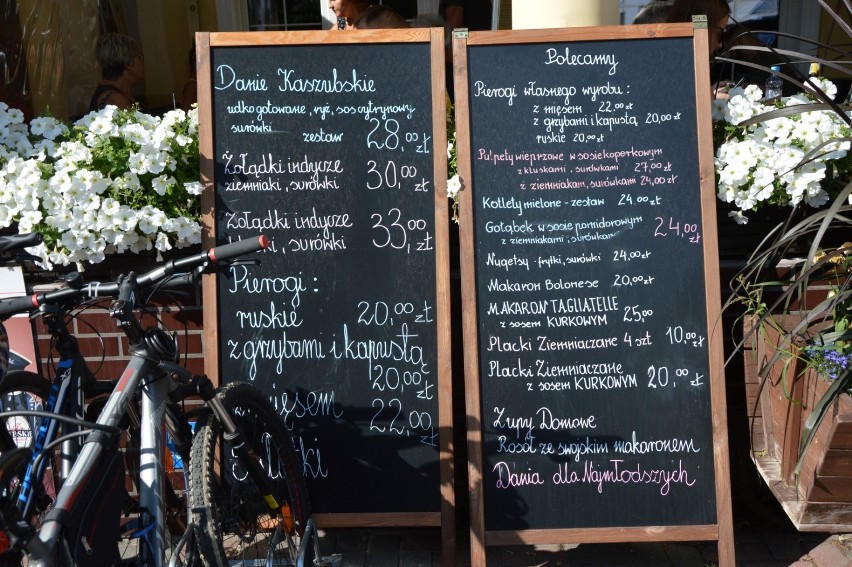 Danie Kaszubskie
udko gotowane, ryż, sos cytrynowy
surówki zestaw 28,00 zł
Żołądki indycze
ziemniaki, surówki 30,00 zł
Żołądki indycze
surówki 33,00 zł
Pierogi :
ruskie 20,00 zł
z grzybami i kapustą
20,00 zł
mięsem 22,00 zł
Polecamy
Pierogi własnego wyrobu :
z mięsem 22,00 zł
z grzybami i kapustą 20,00 zł
ruskie 20,00 zł
Pulpety wieprzowe w sosie koperkowym
z kluskami, surówkami 27,00 zł
z ziemniakami, surówkami 24,00 zł
Kotlety mielone - zestaw 24,00 zł
Gołąbek w sosie pomidorowym
z ziemniakami, surówkami 24,00 zł
Nugetsy - frytki, surówki 24,00 zł
Makaron Bolonese 20,00 zł
MAKARON TAGLIATELLE
z sosem KURKOWYM 25,00
Placki Ziemniaczane 4 szt 10,00 zł
Placki Ziemniaczane
z sosem KURKOWYM 20,00 zł
Zupy Domowe
Rosół ze swojskim makaronem
Dania dla Najmłodszych